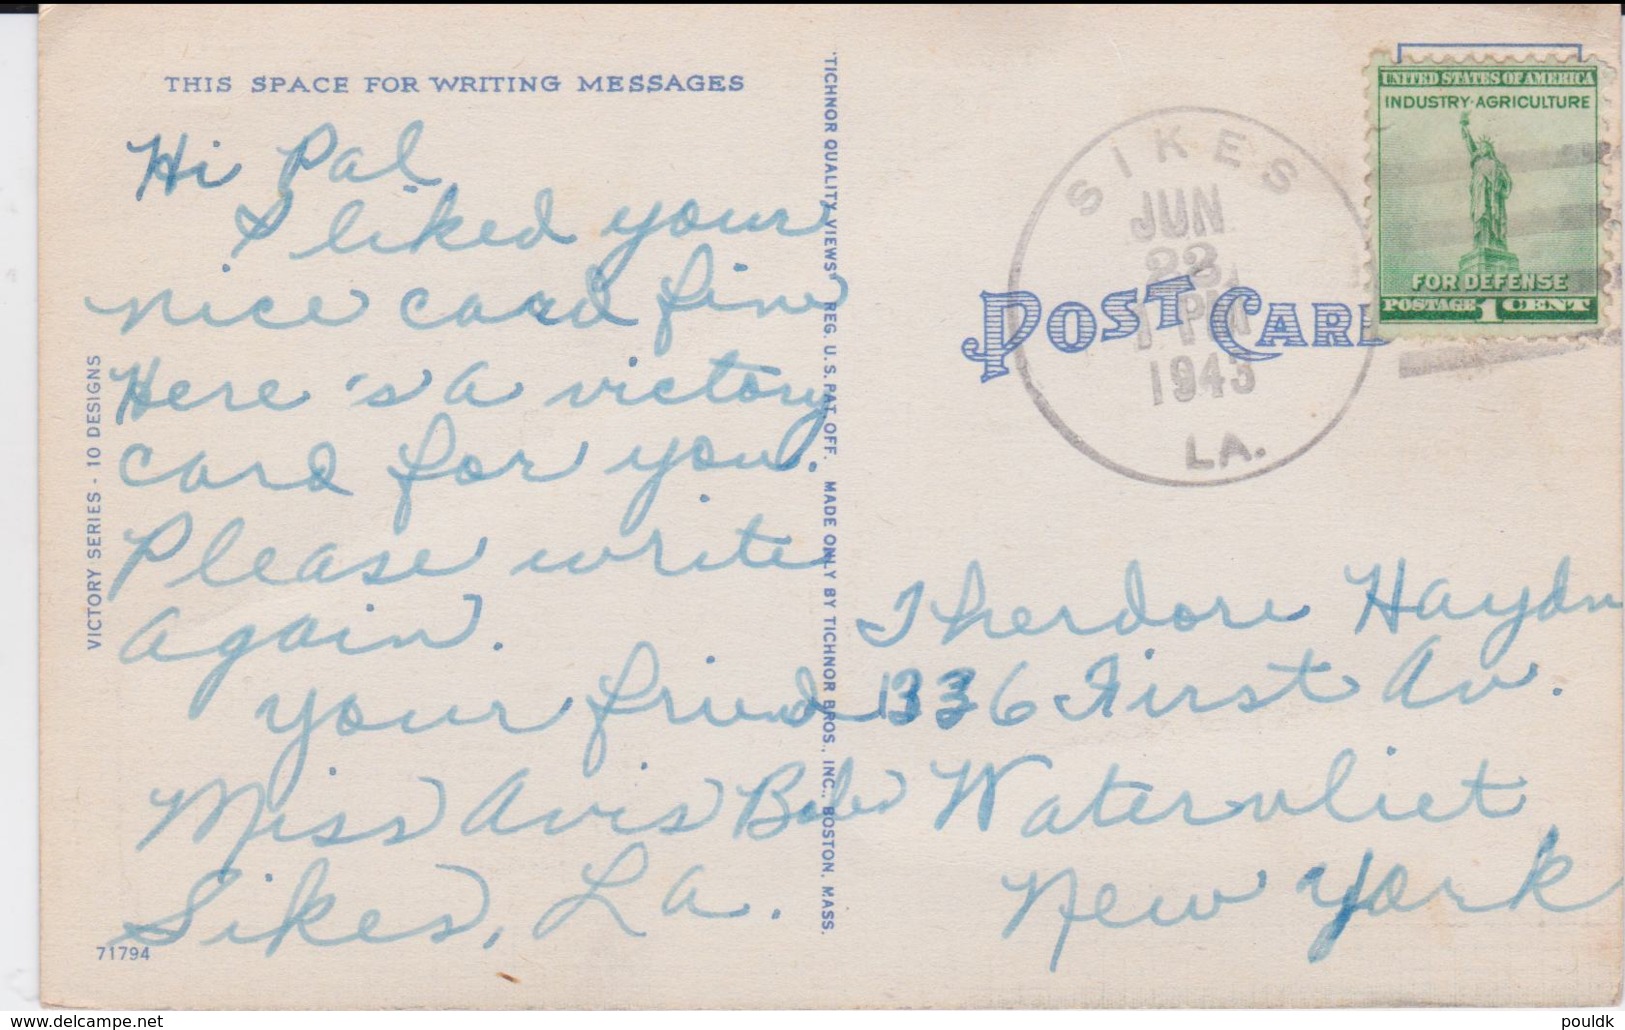 THIS SPACE FOR WRITING MESSAGES
Hi Pal
I liked your
nice card fine
Here's a victory
card for you.
Please write
again.
your friend
Miss Avis
Sikes, La.
VICTORY SERIES - 10 DESIGNS
71794
"TICHNOR QUALITY VIEWS" REG. U. S. PAT. OFF. MADE ONLY BY TICHNOR BROS., INC., BOSTON, MASS.
POST CARD
SIKES
JUN
1 PM
1943
LA.
UNITED STATES OF AMERICA
INDUSTRY·AGRICULTURE
FOR DEFENSE
POSTAGE 1 CENT
Therdore Haydn
1336 First Av.
Watervliet
New York
www.delcampe.net
pouldk